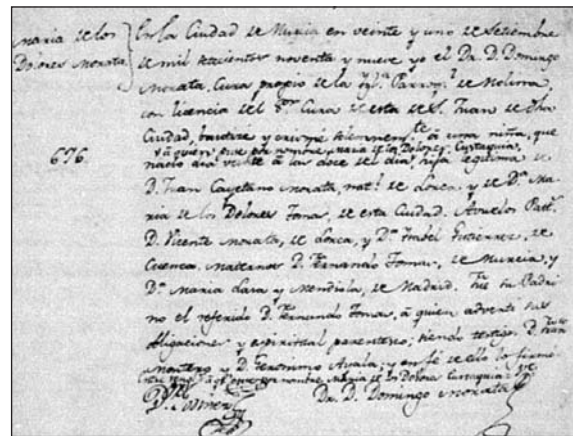 Maria de los
Dolores Morata
676.
En la Ciudad de Murcia en veinte y uno de Setiembre
de mil setecientos noventa y nueve yo el Dr. D. Domingo
Morata, Cura propio de la Ygl.ª Parroq.l de Molina,
con licencia del Cura de esta de S. Juan de dha
Ciudad, bautize y crismé solemnem.te à una niña, que
à quien puse por nombre Maria de los Dolores, Eustaquia,
nacio dia veinte à las doce del dia, hija legitima de
D. Juan Cayetano Morata, nat.l de Lorca, y de D.ª Ma-
ria de los Dolores Tomas, de esta Ciudad. Avuelos Pat.s
D. Vicente Morata, de Lorca, y D.ª Isabel Gutierrez, de
Cuenca. Maternos D. Fernando Tomas, de Murcia, y
D.ª Maria Lara y Mendiola, de Madrid. Fue su Padri-
no el referido D. Fernando Tomas, à quien adverti sus
obligaciones y espiritual parentesco; siendo testigos D. Fran.co
Montero y D. Geronimo Ayala, y en fé de ello lo firmé
Entre reng.s à q.n puse por nombre Maria de los Dolores Eustaquia
Dr. D. Domingo Morata